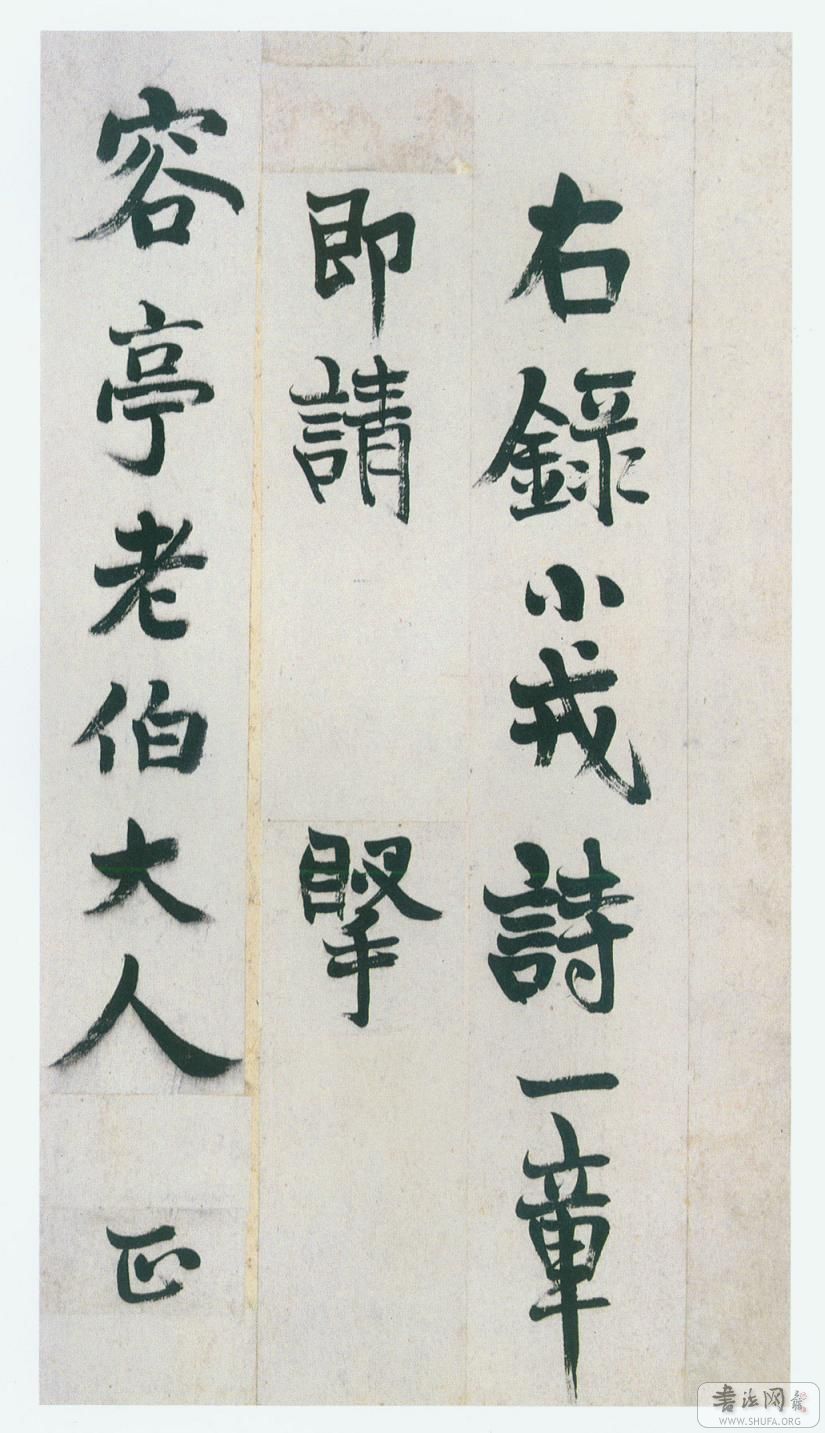 右錄小戎詩一章
即請 掔
容亭老伯大人 正
書法网
WWW.SHUFA.ORG